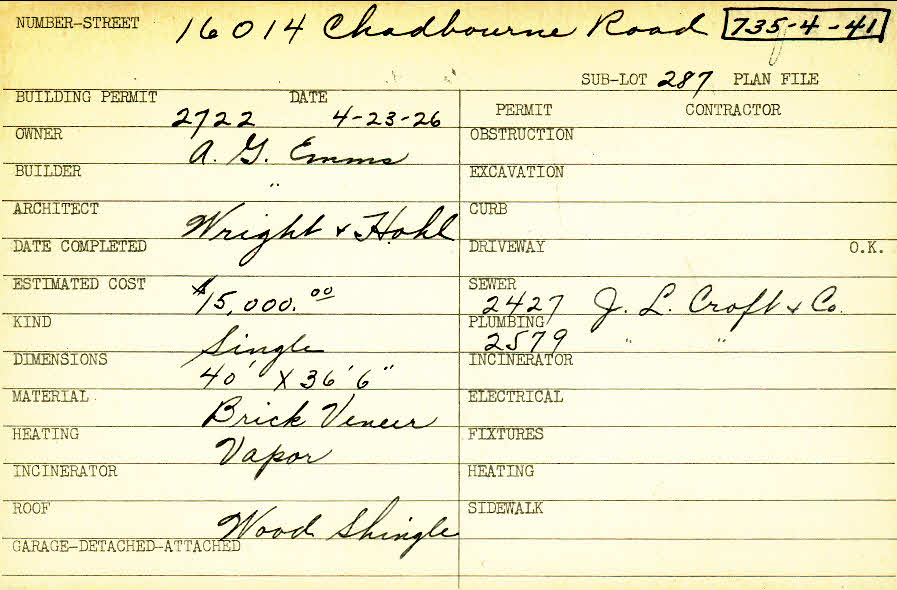 NUMBER-STREET 16014 Chadbourne Road 735-4-41
SUB-LOT 287 PLAN FILE
BUILDING PERMIT 2722 DATE 4-23-26
OWNER A. G. Emms
BUILDER "
ARCHITECT Wright & Hohl
DATE COMPLETED
ESTIMATED COST $15,000.00
KIND Single
DIMENSIONS 40' X 36' 6"
MATERIAL Brick Veneer
HEATING Vapor
INCINERATOR
ROOF Wood Shingle
GARAGE-DETACHED-ATTACHED
PERMIT CONTRACTOR
OBSTRUCTION
EXCAVATION
CURB
DRIVEWAY O.K.
SEWER 2427 J. L. Croft & Co.
PLUMBING 2579 " "
INCINERATOR
ELECTRICAL
FIXTURES
HEATING
SIDEWALK